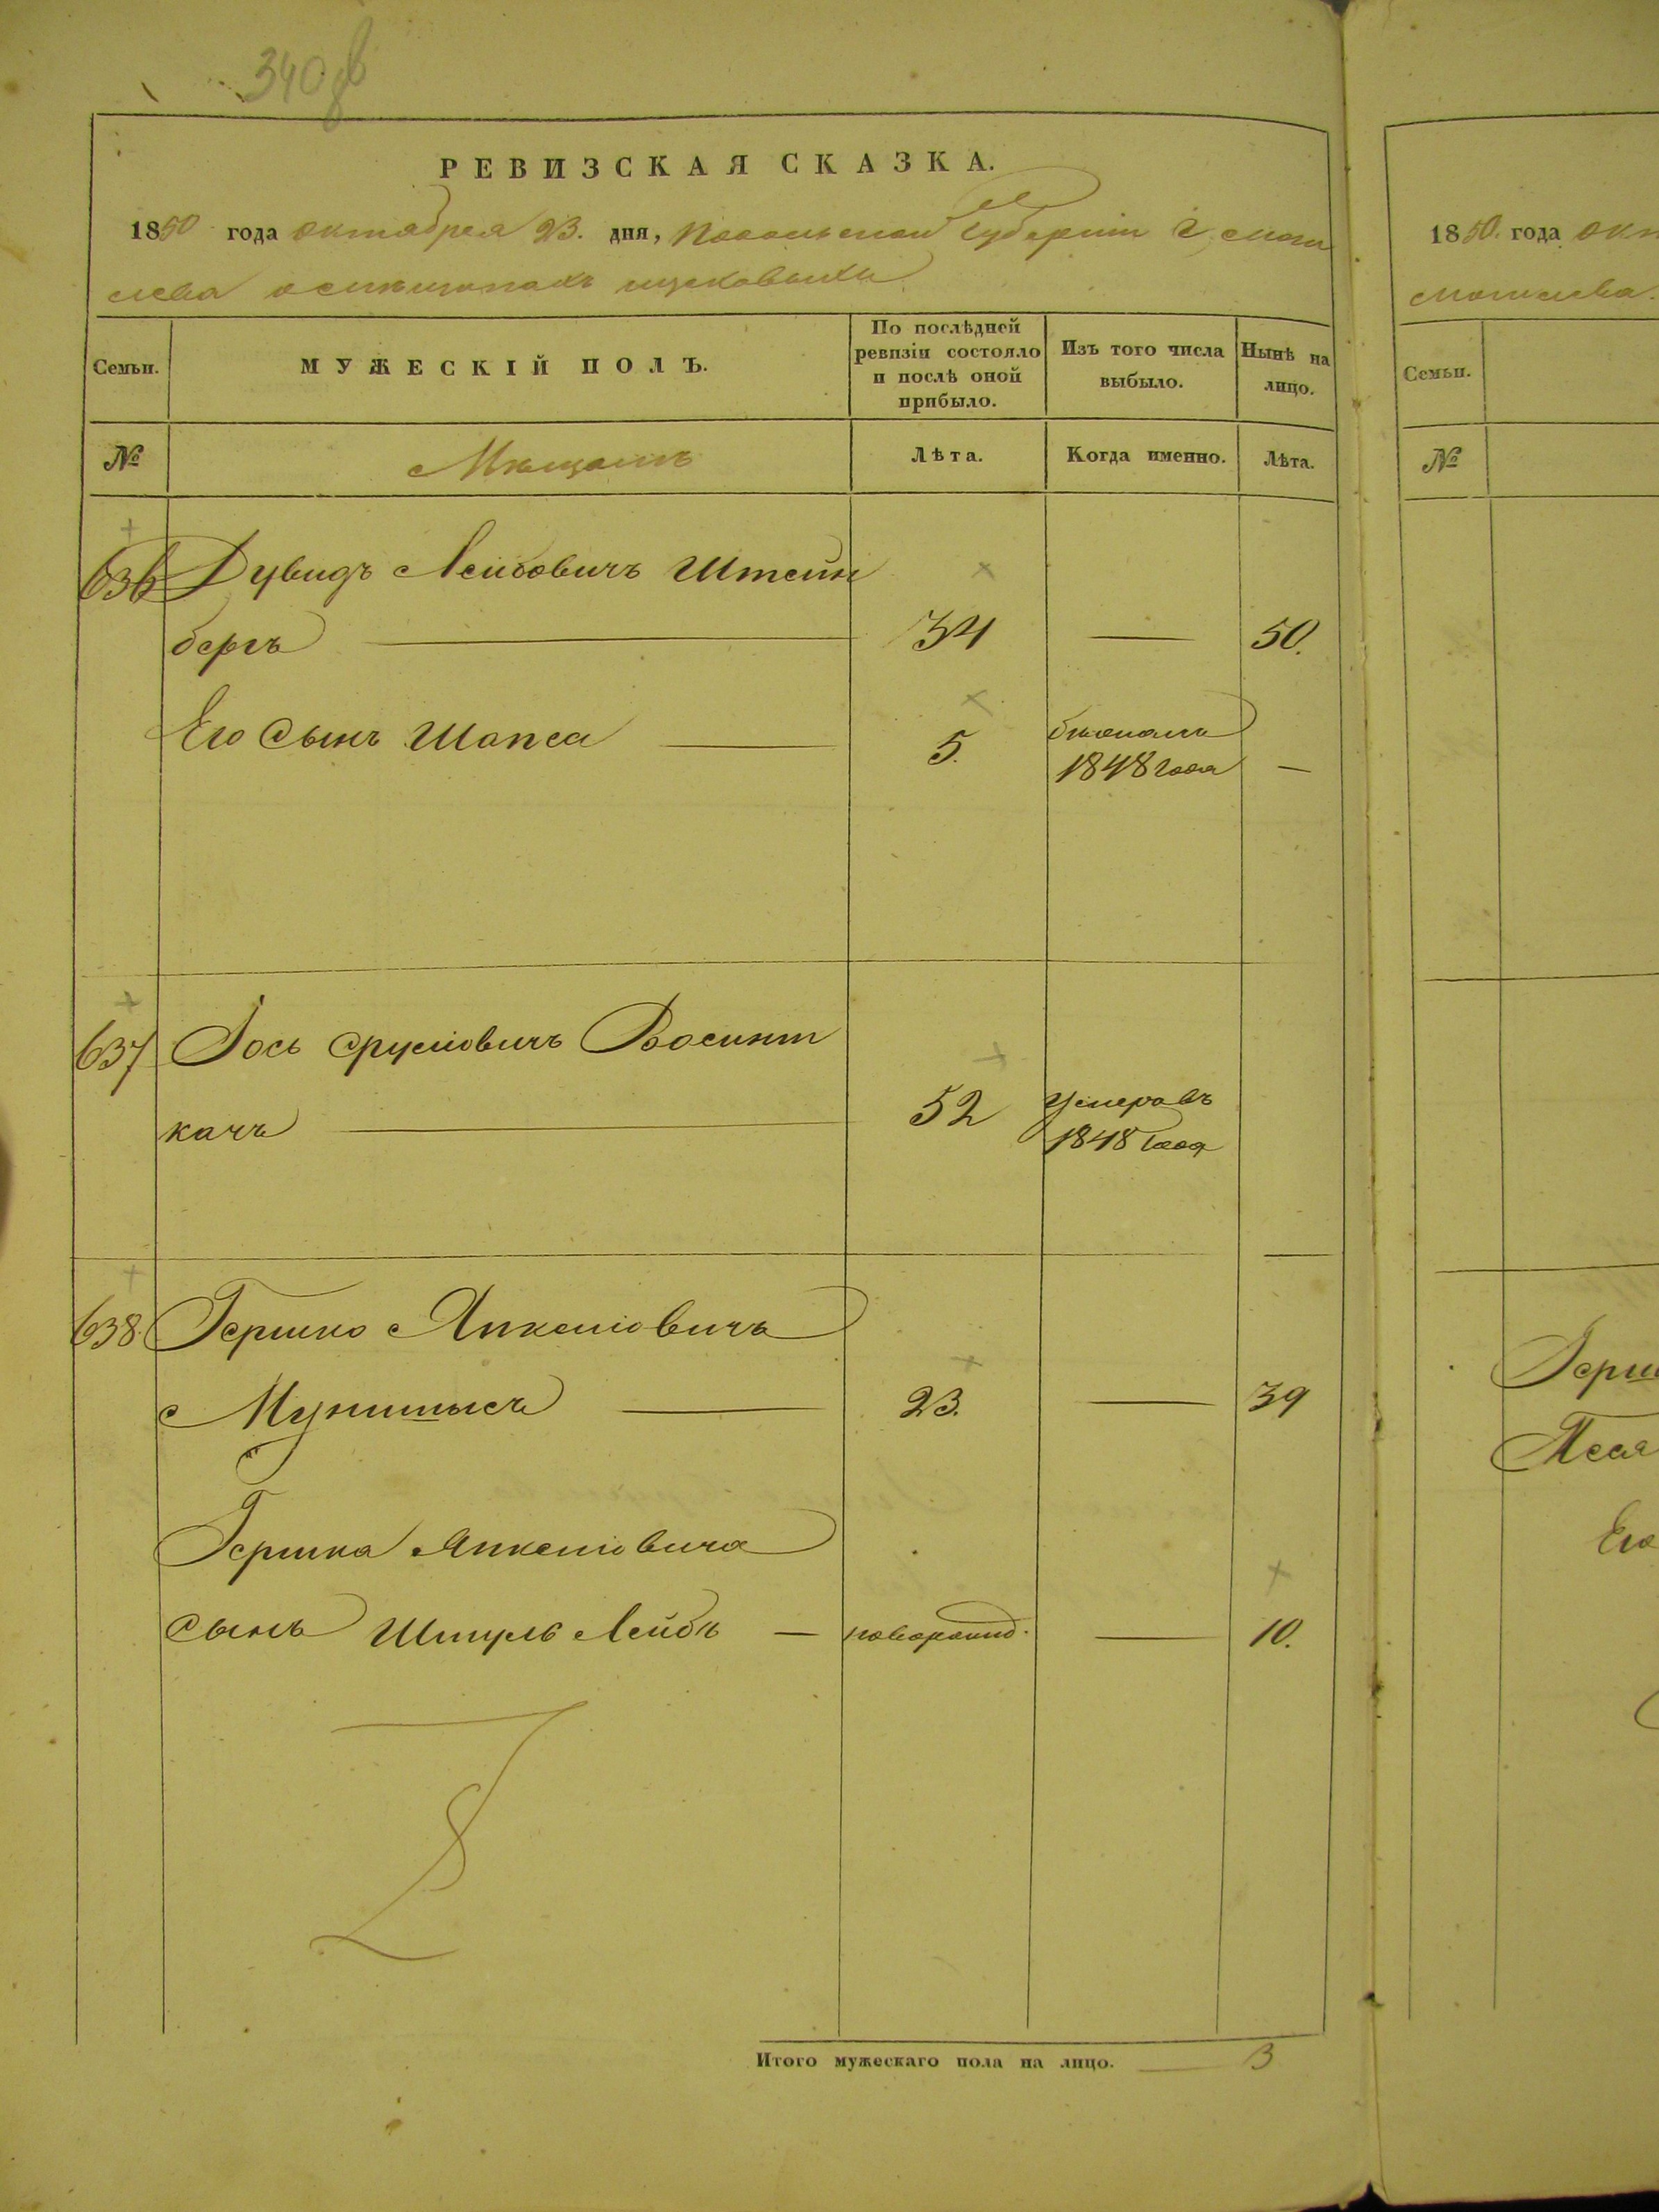 340 об
РЕВИЗСКАЯ СКАЗКА.
1850 года октября 23. дня, Подольской Губерніи г. Моги
лева о
Семьи.
МУЖЕСКІЙ ПОЛЪ.
По послѣдней
ревизіи состояло
и послѣ оной
прибыло.
Изъ того числа
выбыло.
Нынѣ на
лицо.
№
Мѣщанъ
Лѣта.
Когда именно.
Лѣта.
636 Дувидъ Лейбовичъ Штейн
бергъ 34 — 50.
Его сынъ Шапса 5. 1848 года —
637 Іось Срулiовичъ
качъ 52 умеръ въ 1848 года
638. Гершко Янкелiовичъ
23. — 39
Гершка Янкелiовича
сынъ Шмуль Лейбъ — новорожд. — 10.
Итого мужескаго пола на лицо. 3
1850. года окт
Могилева.
Семьи.
№
Герш
Песя
Его